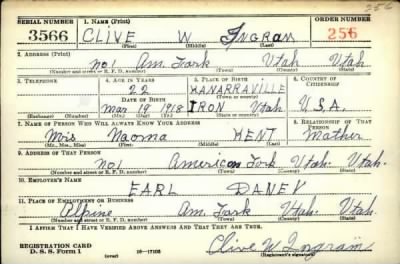 256
SERIAL NUMBER 1. NAME (Print) ORDER NUMBER
3566 CLIVE W INGRAM 256
(First) (Middle) (Last)
2. ADDRESS (Print)
No 1 Am. Fork Utah Utah
(Number and street or R. F. D. number) (Town) (County) (State)
3. TELEPHONE 4. AGE IN YEARS 5. PLACE OF BIRTH 6. COUNTRY OF CITIZENSHIP
22 KANARRAVILLE
DATE OF BIRTH (Town or county)
Mar 19 1918 IRON Utah U.S.A.
(Exchange) (Number) (Mo.) (Day) (Yr.) (State or country)
7. NAME OF PERSON WHO WILL ALWAYS KNOW YOUR ADDRESS 8. RELATIONSHIP OF THAT PERSON
Mrs Naoma KENT Mother
(Mr., Mrs., Miss) (First) (Middle) (Last)
9. ADDRESS OF THAT PERSON
No 1 American Fork Utah. Utah.
(Number and street or R. F. D. number) (Town) (County) (State)
10. EMPLOYER'S NAME
EARL DANEY
11. PLACE OF EMPLOYMENT OR BUSINESS
Alpine Am. Fork Utah. Utah.
(Number and street or R. F. D. number) (Town) (County) (State)
I AFFIRM THAT I HAVE VERIFIED ABOVE ANSWERS AND THAT THEY ARE TRUE.
REGISTRATION CARD
D. S. S. Form 1 (over) 16—17105 Clive W. Ingram
(Registrant's signature)